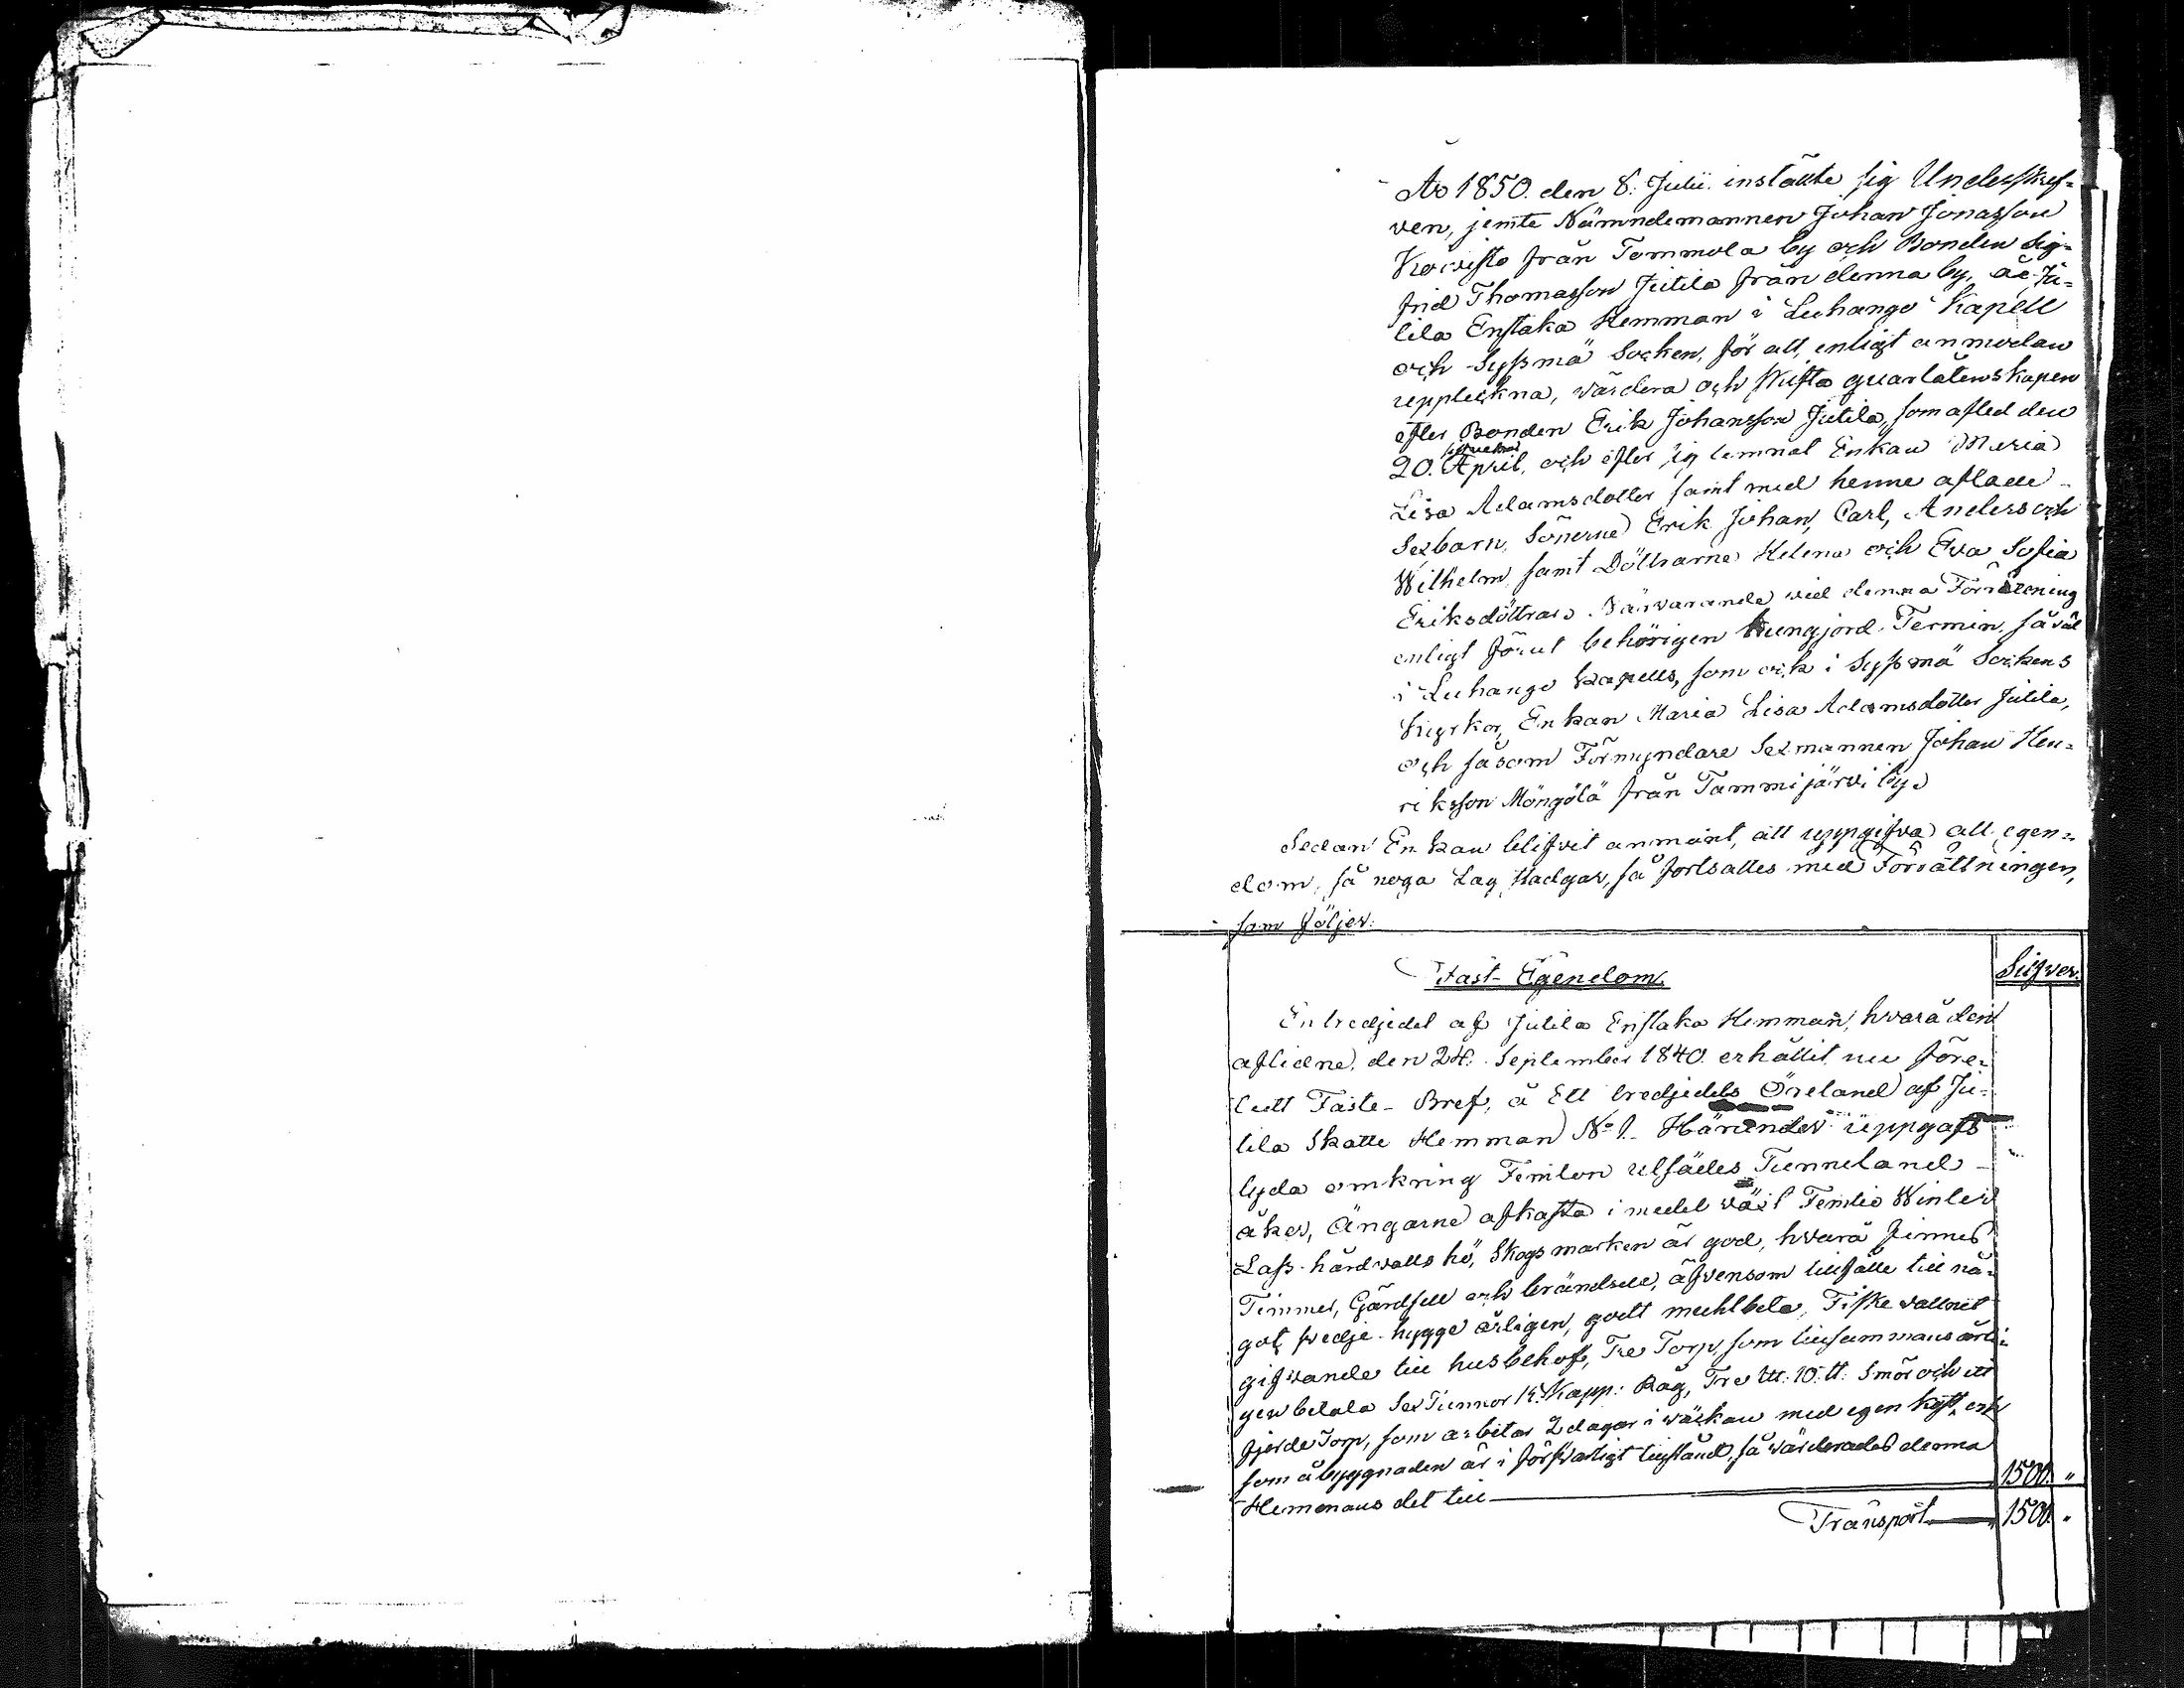 Ao 1850. den 8. Julii. instälte sig Underskref-
ven, jemte Nämndemannen Johan Jonasson
Koivisto från Tommola by och Bonden Sig-
frid Thomasson Jutila från denna by, å Ju-
tila Enstaka Hemman i Luhango Kapell
och Sysmä Socken, för att, enligt anmodan
uppteckna, värdera och skifta quarlåtenskapen
efter Bonden Erik Johansson Jutila, som afled den
20. April, och efter sig lemnat Enkan Maria
Lisa Adamsdotter samt med henne aflade
Sexbarn, Sönerne Erik Johan, Carl, Anders och
Wilhelm, samt Döttrarne Helena och Eva Sofia
Eriksdöttrar. Närvarande vid denna Förrättning
enligt förut behörigen kungjord Termin, så väl
i Luhango Kapells, som ock i Sysmä Sockens
Kyrkor, Enkan Maria Lisa Adamsdotter Jutila,
och såsom Förmyndare Sexmannen Johan Hen-
riksson Möngölä från Tammijärvi by.
Sedan Enkan blifvit anmant, att uppgifva all egen-
dom, så noga Lag stadgar, så fortsattes med Förrättningen,
som följer:
Fast Egendom. Silfver.
En tredjedel af Jutila Enstaka Hemman, hvarå den
aflidne, den 24. September 1840. erhållit nu före-
tedt Faste-Bref, å Ett tredjedels Öreland af Ju-
tila Skatte Hemman No 1. Härunder uppgafs
lyda omkring Femton utsädes Tunneland
åker, Ängarne afkasta i medel växt Femtio Winter
Lass hårdvalls hö, Skogsmarken är god, hvarå finnes
Timmer, Gärdsell och brändsle, äfvensom tillfälle till nå-
got svedje-hygge årligen, godt muhlbete, Fiskevattnet
gifvande till husbehof, Tre Torp, som tillsammans årli-
gen betala Sex Tunnor 15 Kapp: Råg, Tre L℔. 10 ℔. Smör och ett
fjerde Torp, som arbetar 2 dagar i väckan med egen kost, och
som åbyggnaden är i försvarligt tillstånd, så värderades denna
Hemmans del till 1500. "
Transport 1500 "